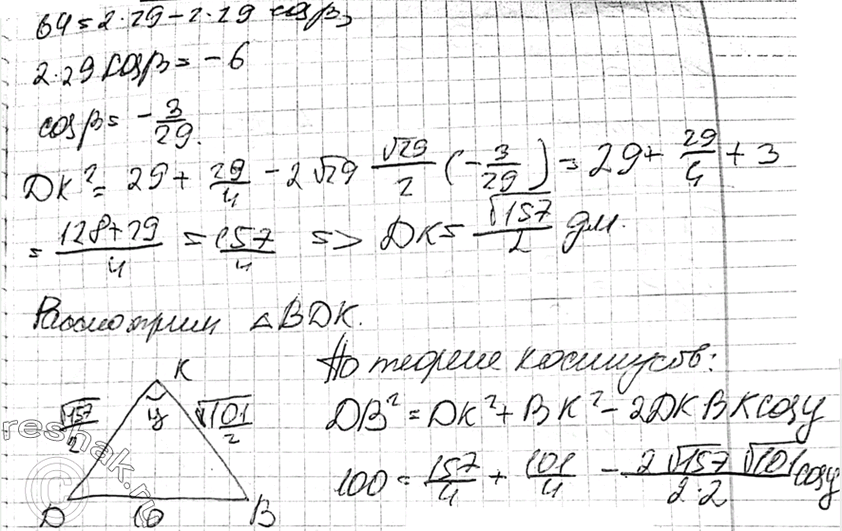 64 = 2·29 - 2·29 cosβ,
2·29 cosβ = -6
cosβ = -3/29.
DK² = 29 + 29/4 - 2√29 √29/2 (-3/29) = 29 + 29/4 + 3
= (128+29)/4 = 157/4 => DK = √157/2 дм.
Рассмотрим △BDK.
По теореме косинусов:
DB² = DK² + BK² - 2DK BK cosy
100 = 157/4 + 101/4 - 2√157 √101/2·2 cosy
K
√157/2
y
√101/2
D
10
B
reshak.ru
©